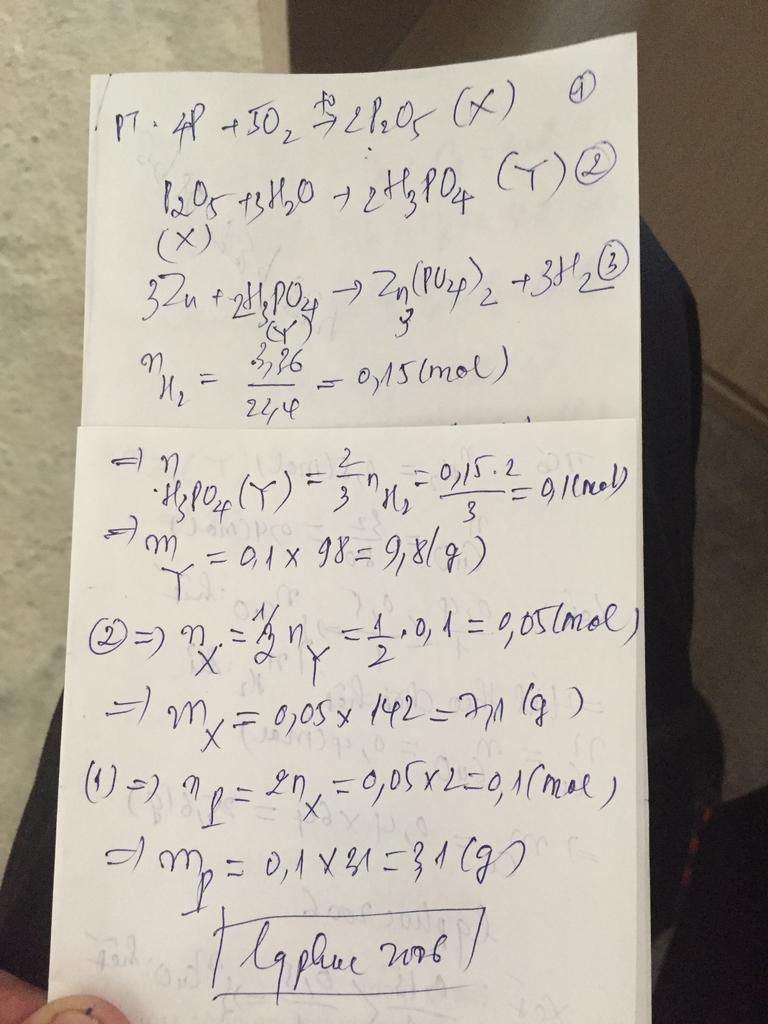 PT: 4P + 5O₂ →ᵗ⁰ 2P₂O₅ (X) ①
P₂O₅ + 3H₂O → 2H₃PO₄ (Y) ②
(X)
3Zn + 2H₃PO₄ → Zn₃(PO₄)₂ + 3H₂ ③
(Y)
n_H₂ = 3,36/22,4 = 0,15 (mol)
=> n_H₃PO₄(Y) = 2/3 n_H₂ = 0,15.2/3 = 0,1(mol)
=> m_Y = 0,1 x 98 = 9,8(g)
② => n_X = 1/2 n_Y = 1/2 . 0,1 = 0,05(mol)
=> m_X = 0,05 x 142 = 7,1 (g)
(1) => n_P = 2n_X = 0,05 x 2 = 0,1(mol)
=> m_P = 0,1 x 31 = 31 (g)
lqphuc 2006